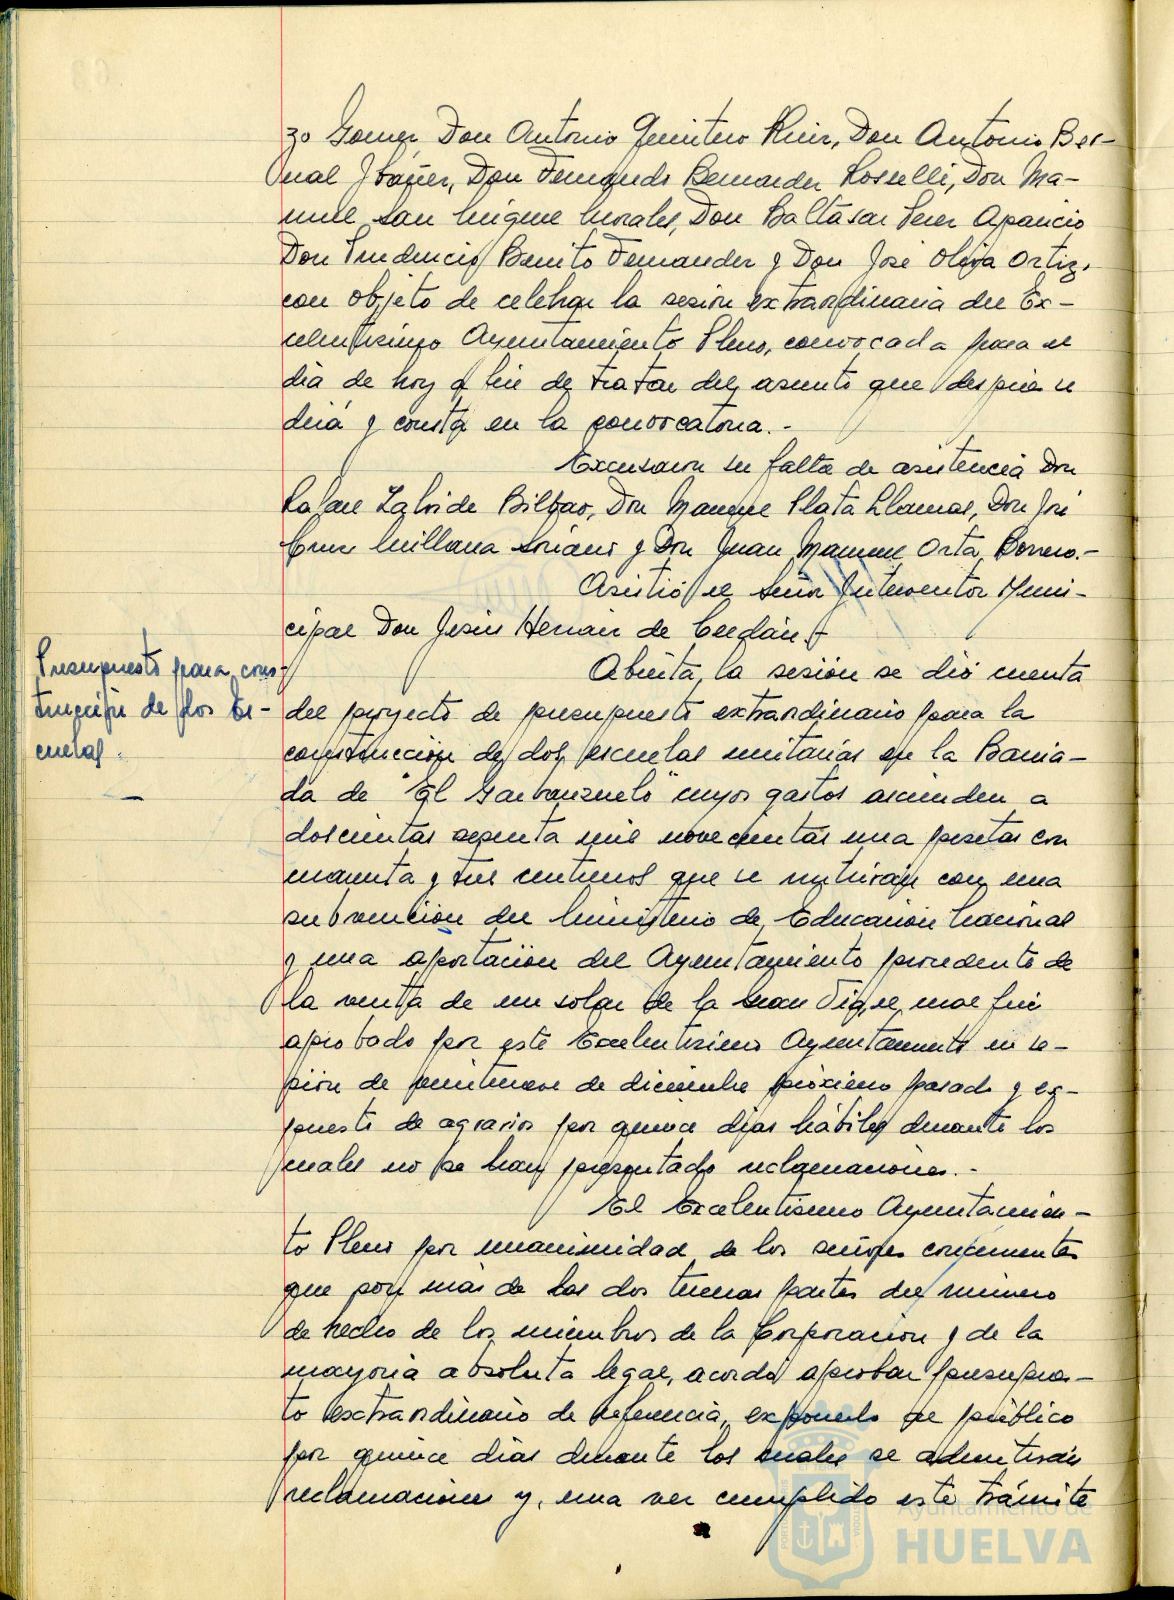 zo Gomez, Don Antonio Quintero Ruiz, Don Antonio Ber-
nal Ibañez, Don Fernando Bernardez Rosselli, Don Ma-
nuel San Miguel Morales, Don Baltasar Perez Aparicio
Don Prudencio Benito Fernandez y Don José Oliva Ortiz,
con objeto de celebrar la sesión extraordinaria del Ex-
celentisimo Ayuntamiento Pleno, convocada para el
dia de hoy a fin de tratar del asunto que despues se
dirá y consta en la convocatoria.-
Excusaron su falta de asistencia Don
Rafael Bilbao, Don Manuel Plata Llamas, Don José
Cruz Millana Soriano y Don Juan Manuel Orta Borrero.-
Asistió el señor Interventor Muni-
cipal Don Jesús Hernan de Cerdán.-
Presupuesto para cons-
trucción de dos es-
cuelas.
Abierta la sesión se dió cuenta
del proyecto de presupuesto extraordinario para la
construcción de dos escuelas unitarias en la Barria-
da de "El Garbanzuelo" cuyos gastos ascienden a
doscientas sesenta mil novecientas una pesetas con
noventa y tres centimos que se nutrirán con una
subvencion del Ministerio de Educación Nacional
y una aportación del Ayuntamiento procedente de
la venta de un solar de la Gran Via, el cual fué
aprobado por este Excelentisimo Ayuntamiento en se-
sión de veintinueve de diciembre próximo pasado y ex-
puesto de agravios por quince dias hábiles durante los
cuales no se han presentado reclamaciones.-
El Excelentisimo Ayuntamien-
to Pleno por unanimidad de los señores concurrentes
que son más de las dos terceras partes del número
de hecho de los miembros de la Corporación y de la
mayoria absoluta legal, acordó aprobar presupues-
to extraordinario de referencia, exponerlo al público
por quince dias durante los cuales se admitirán
reclamaciones y, una vez cumplido este trámite
Ayuntamiento de
HUELVA